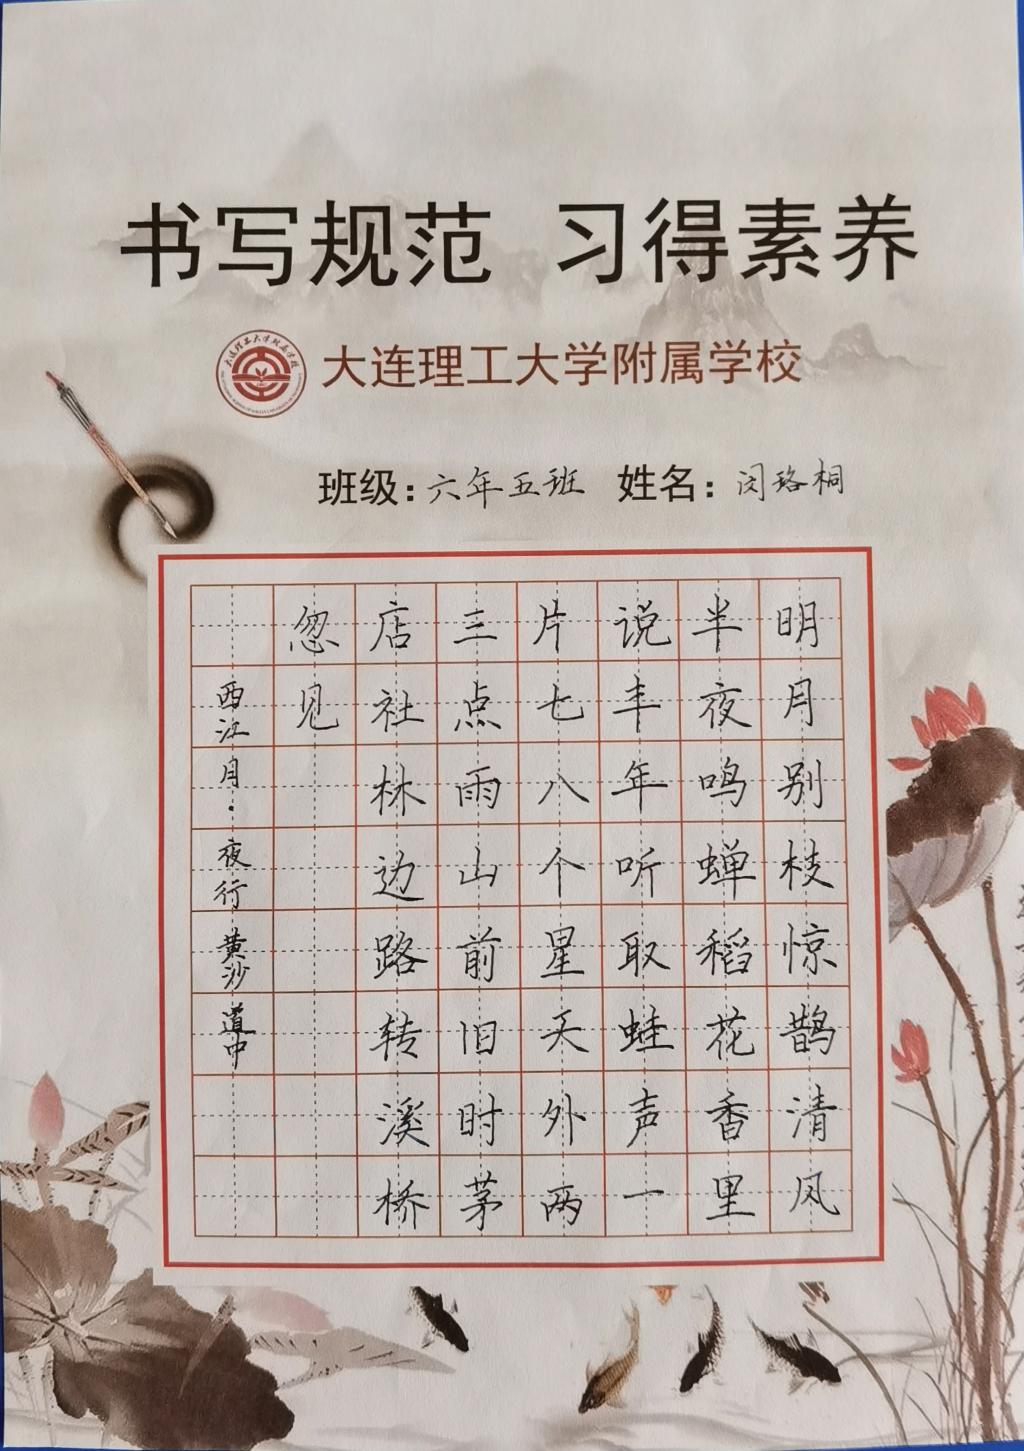 书写规范 习得素养
大连理工大学附属学校
班级：六年五班 姓名：闵珞桐
明月别枝惊鹊清风
半夜鸣蝉稻花香里
说丰年听取蛙声一
片七八个星天外两
三点雨山前旧时茅
店社林边路转溪桥
忽见
西江月·夜行黄沙道中